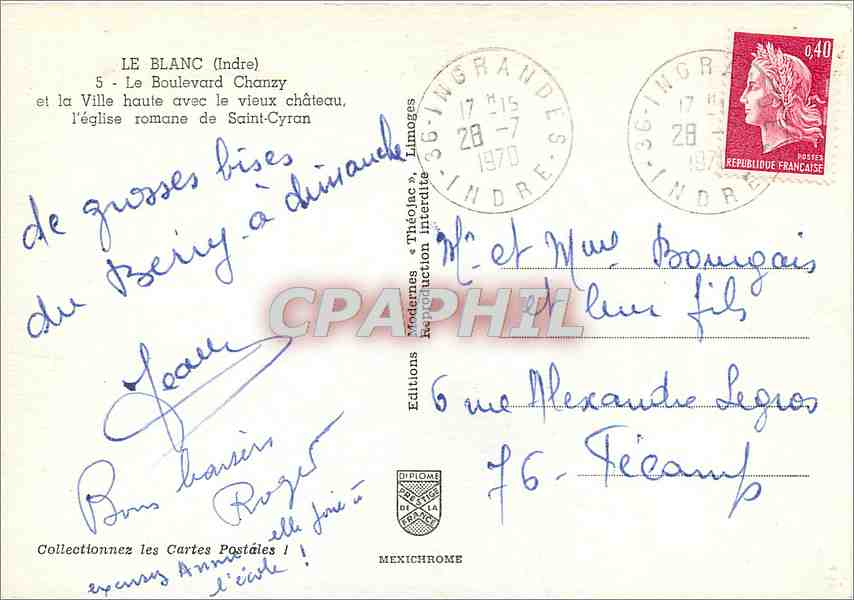 LE BLANC (Indre)
5 - Le Boulevard Chanzy
et la Ville haute avec le vieux château,
l'église romane de Saint-Cyran
de grosses bises
du Berry - à dimanche
Bons baisers
Roger
excusez Annie elle joue à
l'école !
Collectionnez les Cartes Postales !
Editions Modernes « Théojac », Limoges
Reproduction interdite
DIPLOME
PRESTIGE
DE LA
FRANCE
MEXICHROME
36-INGRANDES
17 H-15
28 -7
1970
INDRE-S
36-INGRA
17 H
28 -
197
INDRE
0,40
POSTES
REPUBLIQUE FRANÇAISE
Mr et Mme Bourgais
et leur fils
6 rue Alexandre Legros
76 - Fécamp
CPAPHIL